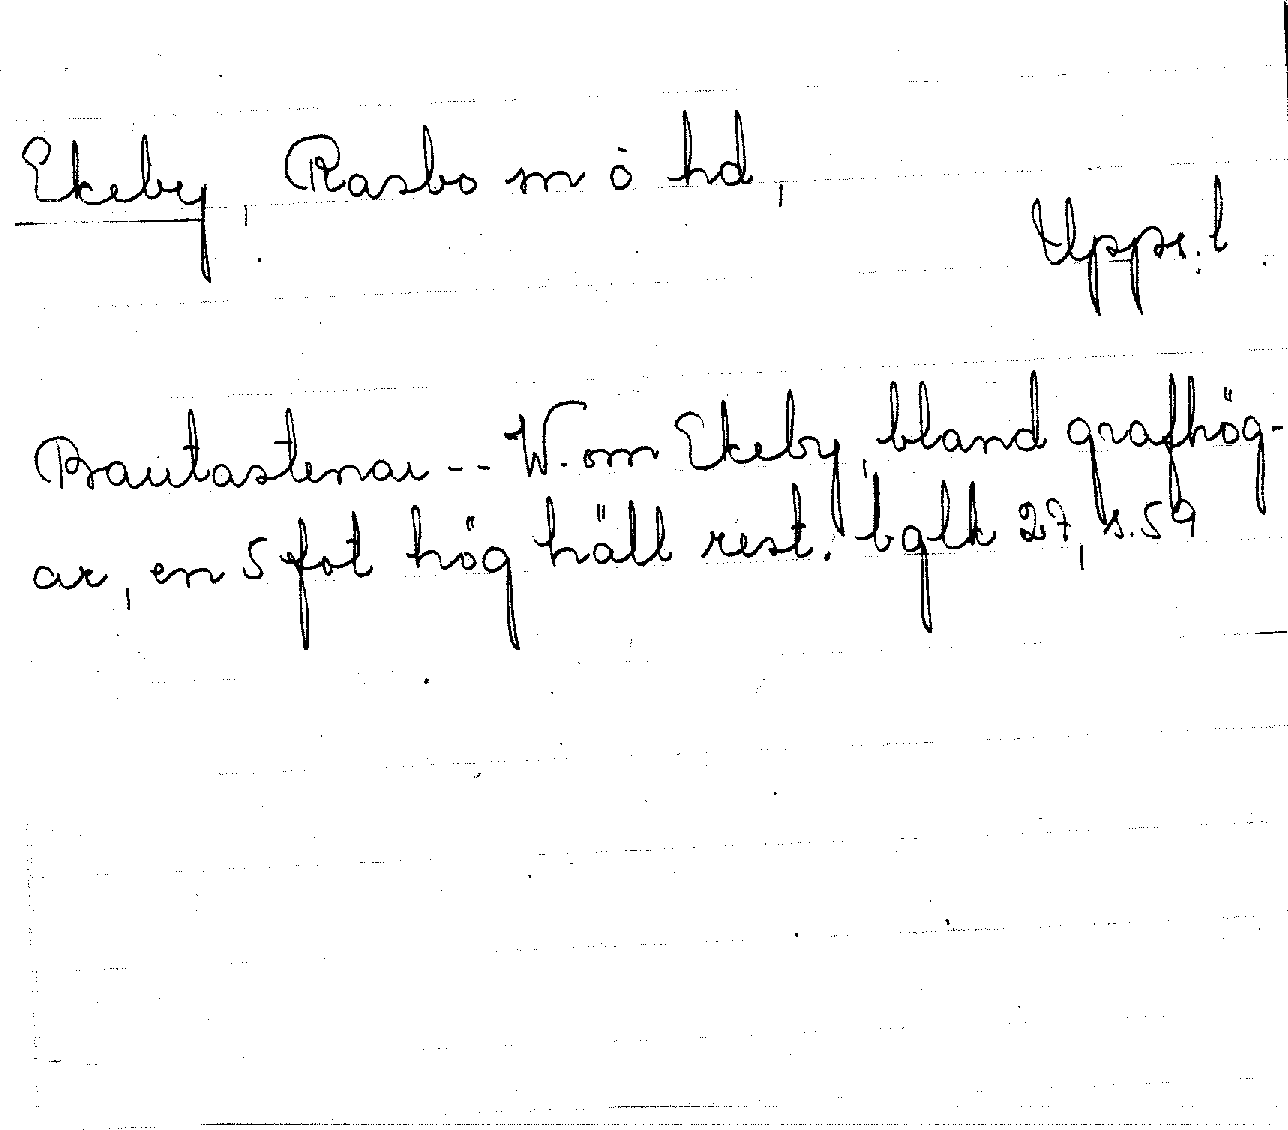 Ekeby, Rasbo sn o hd,
Upps. l
Bautastenar -- W. om Ekeby, bland grafhög-
ar, en 5 fot hög häll rest. bglk 27, s. 59